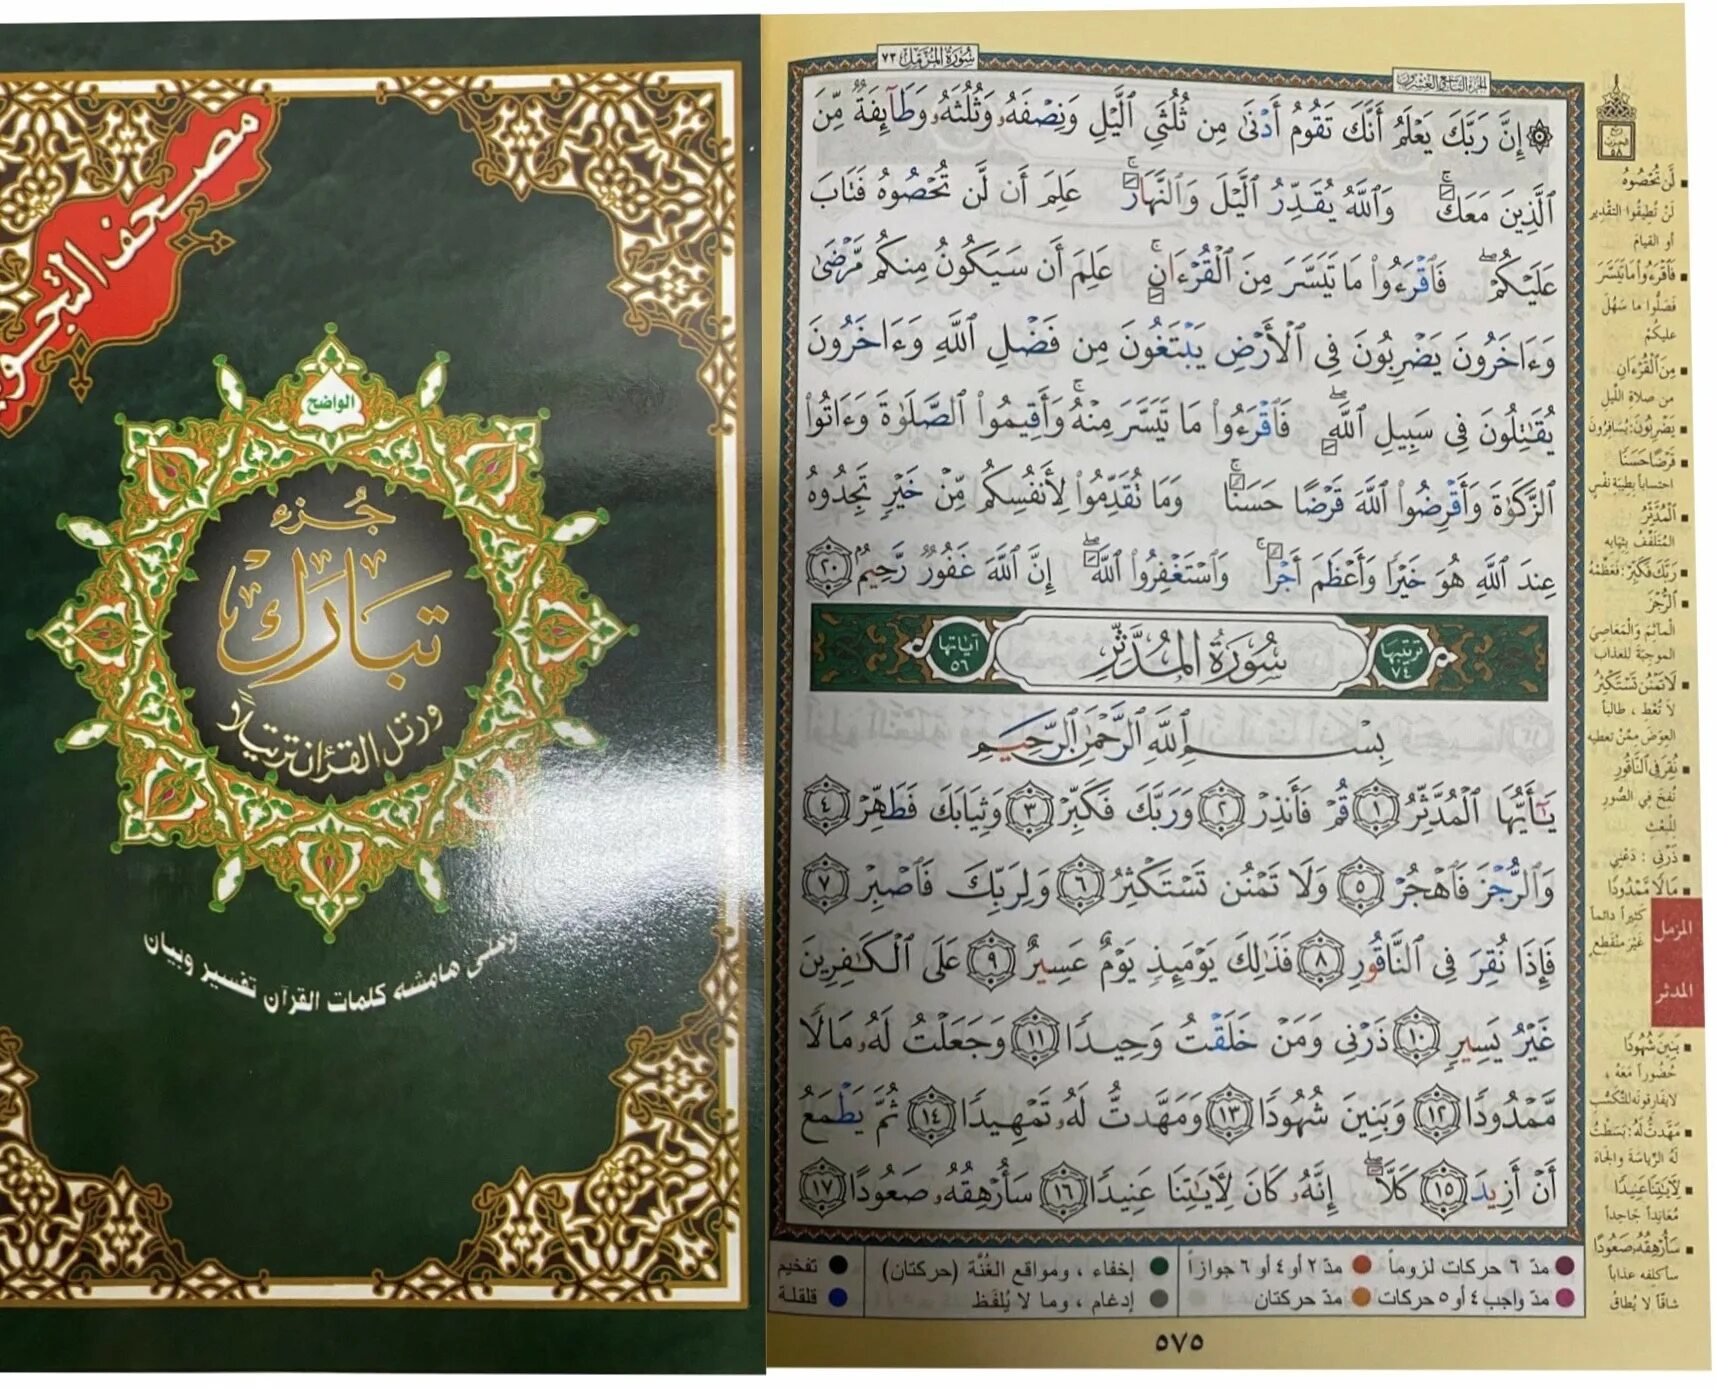 مصحف التجويد
الواضح
جزء
تبارك
ورتل القرآن ترتيلاً
وعلى هامشه كلمات القرآن تفسير وبيان
سُورَةُ المُزَّمِّل ٧٣
الجزء التاسع والعشرون
۞ إِنَّ رَبَّكَ يَعْلَمُ أَنَّكَ تَقُومُ أَدْنَىٰ مِن ثُلُثَيِ ٱلَّيْلِ وَنِصْفَهُۥ وَثُلُثَهُۥ وَطَآئِفَةٌ مِّنَ
ٱلَّذِينَ مَعَكَۚ وَٱللَّهُ يُقَدِّرُ ٱلَّيْلَ وَٱلنَّهَارَۚ عَلِمَ أَن لَّن تُحْصُوهُ فَتَابَ
عَلَيْكُمْۖ فَٱقْرَءُوا۟ مَا تَيَسَّرَ مِنَ ٱلْقُرْءَانِۚ عَلِمَ أَن سَيَكُونُ مِنكُم مَّرْضَىٰ
وَءَاخَرُونَ يَضْرِبُونَ فِى ٱلْأَرْضِ يَبْتَغُونَ مِن فَضْلِ ٱللَّهِ وَءَاخَرُونَ
يُقَٰتِلُونَ فِى سَبِيلِ ٱللَّهِۖ فَٱقْرَءُوا۟ مَا تَيَسَّرَ مِنْهُۚ وَأَقِيمُوا۟ ٱلصَّلَوٰةَ وَءَاتُوا۟
ٱلزَّكَوٰةَ وَأَقْرِضُوا۟ ٱللَّهَ قَرْضًا حَسَنًاۚ وَمَا تُقَدِّمُوا۟ لِأَنفُسِكُم مِّنْ خَيْرٍ تَجِدُوهُ
عِندَ ٱللَّهِ هُوَ خَيْرًا وَأَعْظَمَ أَجْرًاۚ وَٱسْتَغْفِرُوا۟ ٱللَّهَۖ إِنَّ ٱللَّهَ غَفُورٌ رَّحِيمٌۢ ٢٠
ترتيبها ٧٤ سُورَةُ المُدَّثِّر آياتها ٥٦
بِسْمِ ٱللَّهِ ٱلرَّحْمَٰنِ ٱلرَّحِيمِ
يَٰٓأَيُّهَا ٱلْمُدَّثِّرُ ١ قُمْ فَأَنذِرْ ٢ وَرَبَّكَ فَكَبِّرْ ٣ وَثِيَابَكَ فَطَهِّرْ ٤
وَٱلرُّجْزَ فَٱهْجُرْ ٥ وَلَا تَمْنُن تَسْتَكْثِرُ ٦ وَلِرَبِّكَ فَٱصْبِرْ ٧
فَإِذَا نُقِرَ فِى ٱلنَّاقُورِ ٨ فَذَٰلِكَ يَوْمَئِذٍ يَوْمٌ عَسِيرٌ ٩ عَلَى ٱلْكَٰفِرِينَ
غَيْرُ يَسِيرٍ ١٠ ذَرْنِى وَمَنْ خَلَقْتُ وَحِيدًا ١١ وَجَعَلْتُ لَهُۥ مَالًا
مَّمْدُودًا ١٢ وَبَنِينَ شُهُودًا ١٣ وَمَهَّدتُّ لَهُۥ تَمْهِيدًا ١٤ ثُمَّ يَطْمَعُ
أَنْ أَزِيدَ ١٥ كَلَّآۖ إِنَّهُۥ كَانَ لِءَايَٰتِنَا عَنِيدًا ١٦ سَأُرْهِقُهُۥ صَعُودًا ١٧
لَّن تُحْصُوهُ
لَنْ تُطِيقُوا التقْدِير
أو القيامَ
فَٱقْرَءُوا۟ مَا تَيَسَّرَ
فَصَلُّوا ما سَهُلَ
عليكُمْ
مِنَ ٱلْقُرْءَانِ
من صلاة اللّيل
يَضْرِبُونَ: يُسَافِرُونَ
قَرْضًا حَسَنًا
احتساباً بطِيبَة نفْسٍ
ٱلْمُدَّثِّرُ
المُتَلَفِّفُ بِثِيَابِه
رَبَّكَ فَكَبِّرْ: فَعَظِّمْهُ
ٱلرُّجْزَ
الْمآثِمَ وَالْمَعَاصِيَ
الموجِبَة للعذابِ
لَا تَمْنُن تَسْتَكْثِرُ
لاَ تُعْطِ ، طالباً
العِوَضَ مِمَّنْ تعطيه
نُقِرَ فِى ٱلنَّاقُورِ
نُفِخَ في الصُّورِ
لِلْبَعْثِ
ذَرْنِى : دَعْنِي
مَالًا مَّمْدُودًا
كَثِيراً دائماً
غيْرَ منْقَطِعٍ
المزمل
المدثر
بَنِينَ شُهُودًا
حُضُوراً مَعَهُ ،
لا يفارِقُونَه للتّكَسُّبِ
مَهَّدتُّ لَهُ: بَسَطْتُ
لَهُ الرِّيَاسَةَ والجَاهَ
لِءَايَٰتِنَا عَنِيدًا
مُعَانِداً جَاحِداً
سَأُرْهِقُهُۥ صَعُودًا
سأكلفه عذاباً
شاقّاً لا يُطاقُ
مدّ ٦ حركات لزوماً مدّ ٢ أو ٤ أو ٦ جوازاً إخفاء ، ومواقع الغُنَّة (حركتان) تفخيم
مدّ واجب ٤ أو ٥ حركات مدّ حركتان إدغام ، وما لا يُلفَظ قلقلة
٥٧٥